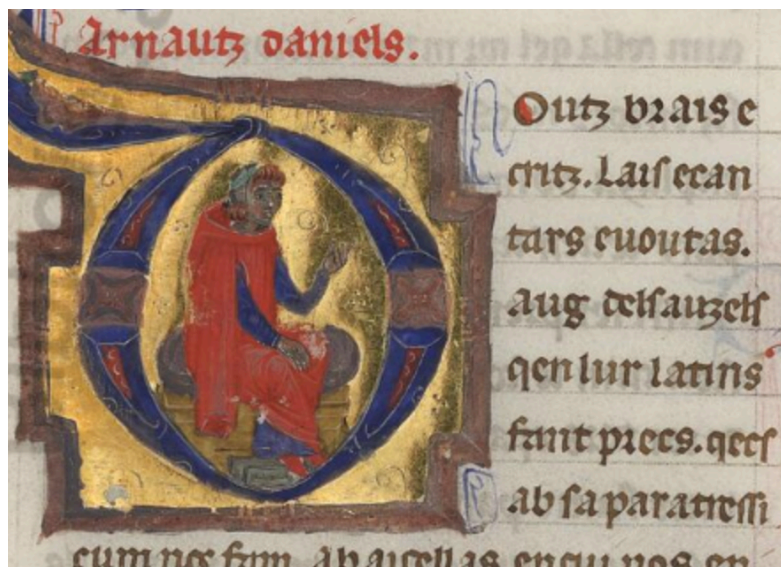 Arnautz daniels.
Doutz brais e
critz. Lais e can
tars e uoutas.
aug dels auzels
qen lur latins
fant precs. qecs
ab sa par atressi
cum nos fam. ab aicellas en cui nos en